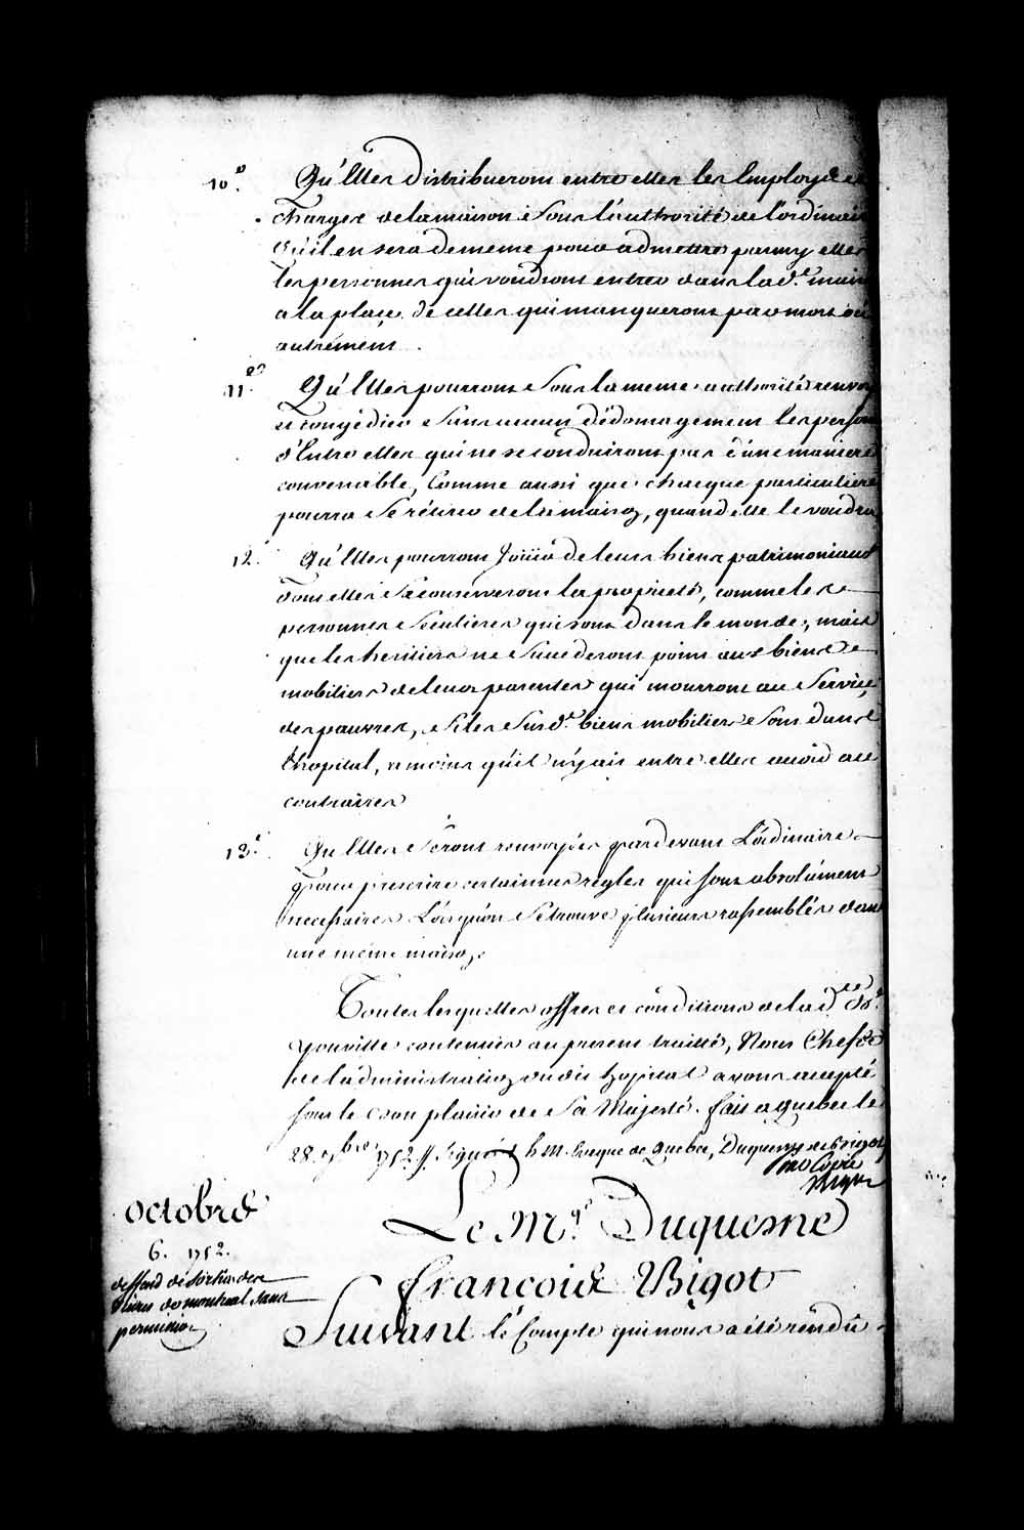 10.° Qu'Elles distribueront entre elles les Employs et
charges de la maison sous l'authorité de l'ordinaire
Qu'il en sera de meme pour admettre parmy elles
les personnes qui voudront entrer dans la d.e maison
a la place de celles qui manqueront par mort ou
autrement.
11.° Qu'Elles pourront sous la meme authorité renvoyer
et congédier sans aucun dédomagement les personnes
d'Entre elles qui ne se conduiront pas d'une maniere
convenable, Comme aussi que chaque particuliere
pourra se rétirer de la maison, quand elle le voudra
12.° Qu'Elles pourront Joüir de leurs biens patrimoniaux
dont elles se conserveront la proprieté, comme les
personnes séculieres qui sont dans le monde, mais
que les heritiers ne succederont point aux biens
mobiliers de leurs parentes qui mourront au Service
des pauvres, si les susd.ts biens mobiliers sont dans
L'hopital, a moins qu'il n'y ait entre elles accord au
contraire
13.° Qu'Elles seront renvoyées pardevant L'ordinaire
pour prescrire certaines regles qui sont absolument
necessaires Lorsqu'on se trouve plusieurs rassemblés dans
une même maison.
Toutes lesquelles offres et conditions de la d.e D.e
youville contenües au present traitté, Nous Chefs
de l'administration du dit hopital avons accepté
sous le bon plaisir de Sa Majesté. fait a Quebec le
28. 7bre 1752 // signé h. M. Eveque de Quebec, Duquesne et Bigot
pour Copie
Bigot
octobre
6. 1752.
deffend de sortir des
vivres de montreal sans
permission
Le M.qs Duquesne
francois Bigot
Suivant le Compte qui nous a été rendû